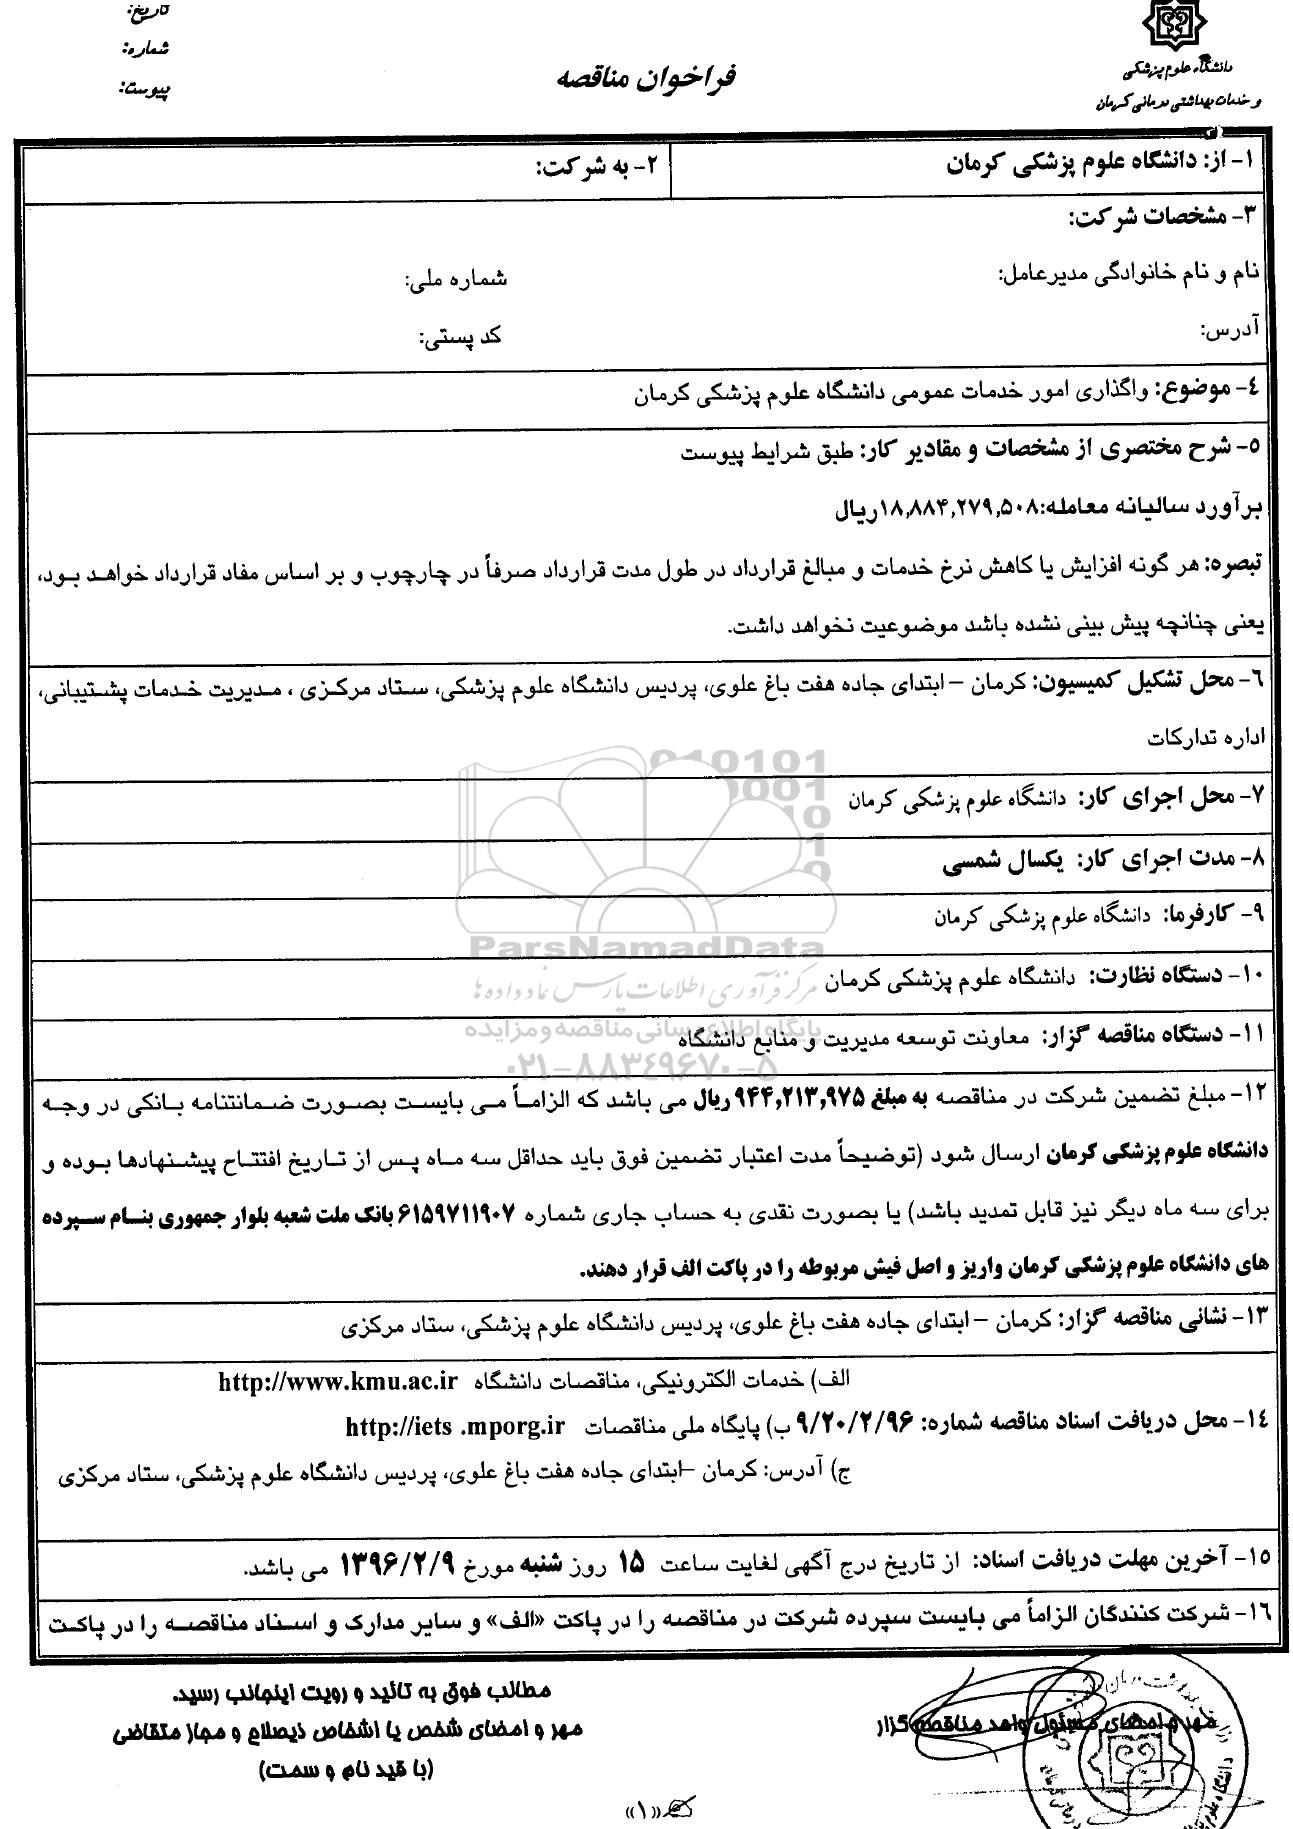 دانشگاه علوم پزشکی
و خدمات بهداشتی درمانی کرمان
فراخوان مناقصه
تاریخ:
شماره:
پیوست:
۱- از: دانشگاه علوم پزشکی کرمان
۲- به شرکت:
۳- مشخصات شرکت:
نام و نام خانوادگی مدیرعامل: شماره ملی:
آدرس: کد پستی:
۴- موضوع: واگذاری امور خدمات عمومی دانشگاه علوم پزشکی کرمان
۵- شرح مختصری از مشخصات و مقادیر کار: طبق شرایط پیوست
برآورد سالیانه معامله:۱۸,۸۸۴,۲۷۹,۵۰۸ریال
تبصره: هر گونه افزایش یا کاهش نرخ خدمات و مبالغ قرارداد در طول مدت قرارداد صرفاً در چارچوب و بر اساس مفاد قرارداد خواهد بود،
یعنی چنانچه پیش بینی نشده باشد موضوعیت نخواهد داشت.
۶- محل تشکیل کمیسیون: کرمان – ابتدای جاده هفت باغ علوی، پردیس دانشگاه علوم پزشکی، ستاد مرکزی ، مدیریت خدمات پشتیبانی،
اداره تدارکات
۷- محل اجرای کار: دانشگاه علوم پزشکی کرمان
۸- مدت اجرای کار: یکسال شمسی
۹- کارفرما: دانشگاه علوم پزشکی کرمان
ParsNamadData
۱۰- دستگاه نظارت: دانشگاه علوم پزشکی کرمان
مرکز فرآوری اطلاعات پارس نماد داده ها
پایگاه اطلاع رسانی مناقصه و مزایده
۱۱- دستگاه مناقصه گزار: معاونت توسعه مدیریت و منابع دانشگاه
۰۲۱-۸۸۳۴۹۶۷۰-۵
۱۲- مبلغ تضمین شرکت در مناقصه به مبلغ ۹۴۴,۲۱۳,۹۷۵ ریال می باشد که الزاماً می بایست بصورت ضمانتنامه بانکی در وجه
دانشگاه علوم پزشکی کرمان ارسال شود (توضیحاً مدت اعتبار تضمین فوق باید حداقل سه ماه پس از تاریخ افتتاح پیشنهادها بوده و
برای سه ماه دیگر نیز قابل تمدید باشد) یا بصورت نقدی به حساب جاری شماره ۶۱۵۹۷۱۱۹۰۷ بانک ملت شعبه بلوار جمهوری بنام سپرده
های دانشگاه علوم پزشکی کرمان واریز و اصل فیش مربوطه را در پاکت الف قرار دهند.
۱۳- نشانی مناقصه گزار: کرمان – ابتدای جاده هفت باغ علوی، پردیس دانشگاه علوم پزشکی، ستاد مرکزی
الف) خدمات الکترونیکی، مناقصات دانشگاه http://www.kmu.ac.ir
۱۴- محل دریافت اسناد مناقصه شماره: ۹/۲۰/۲/۹۶ ب) پایگاه ملی مناقصات http://iets .mporg.ir
ج) آدرس: کرمان –ابتدای جاده هفت باغ علوی، پردیس دانشگاه علوم پزشکی، ستاد مرکزی
۱۵- آخرین مهلت دریافت اسناد: از تاریخ درج آگهی لغایت ساعت ۱۵ روز شنبه مورخ ۱۳۹۶/۲/۹ می باشد.
۱۶- شرکت کنندگان الزاماً می بایست سپرده شرکت در مناقصه را در پاکت «الف» و سایر مدارک و اسناد مناقصه را در پاکت
مهر و امضای مسئول واحد مناقصه گزار
مطالب فوق به تائید و رویت اینجانب رسید.
مهر و امضای شخص یا اشخاص ذیصلاح و مجاز متقاضی
(با قید نام و سمت)
«۱»